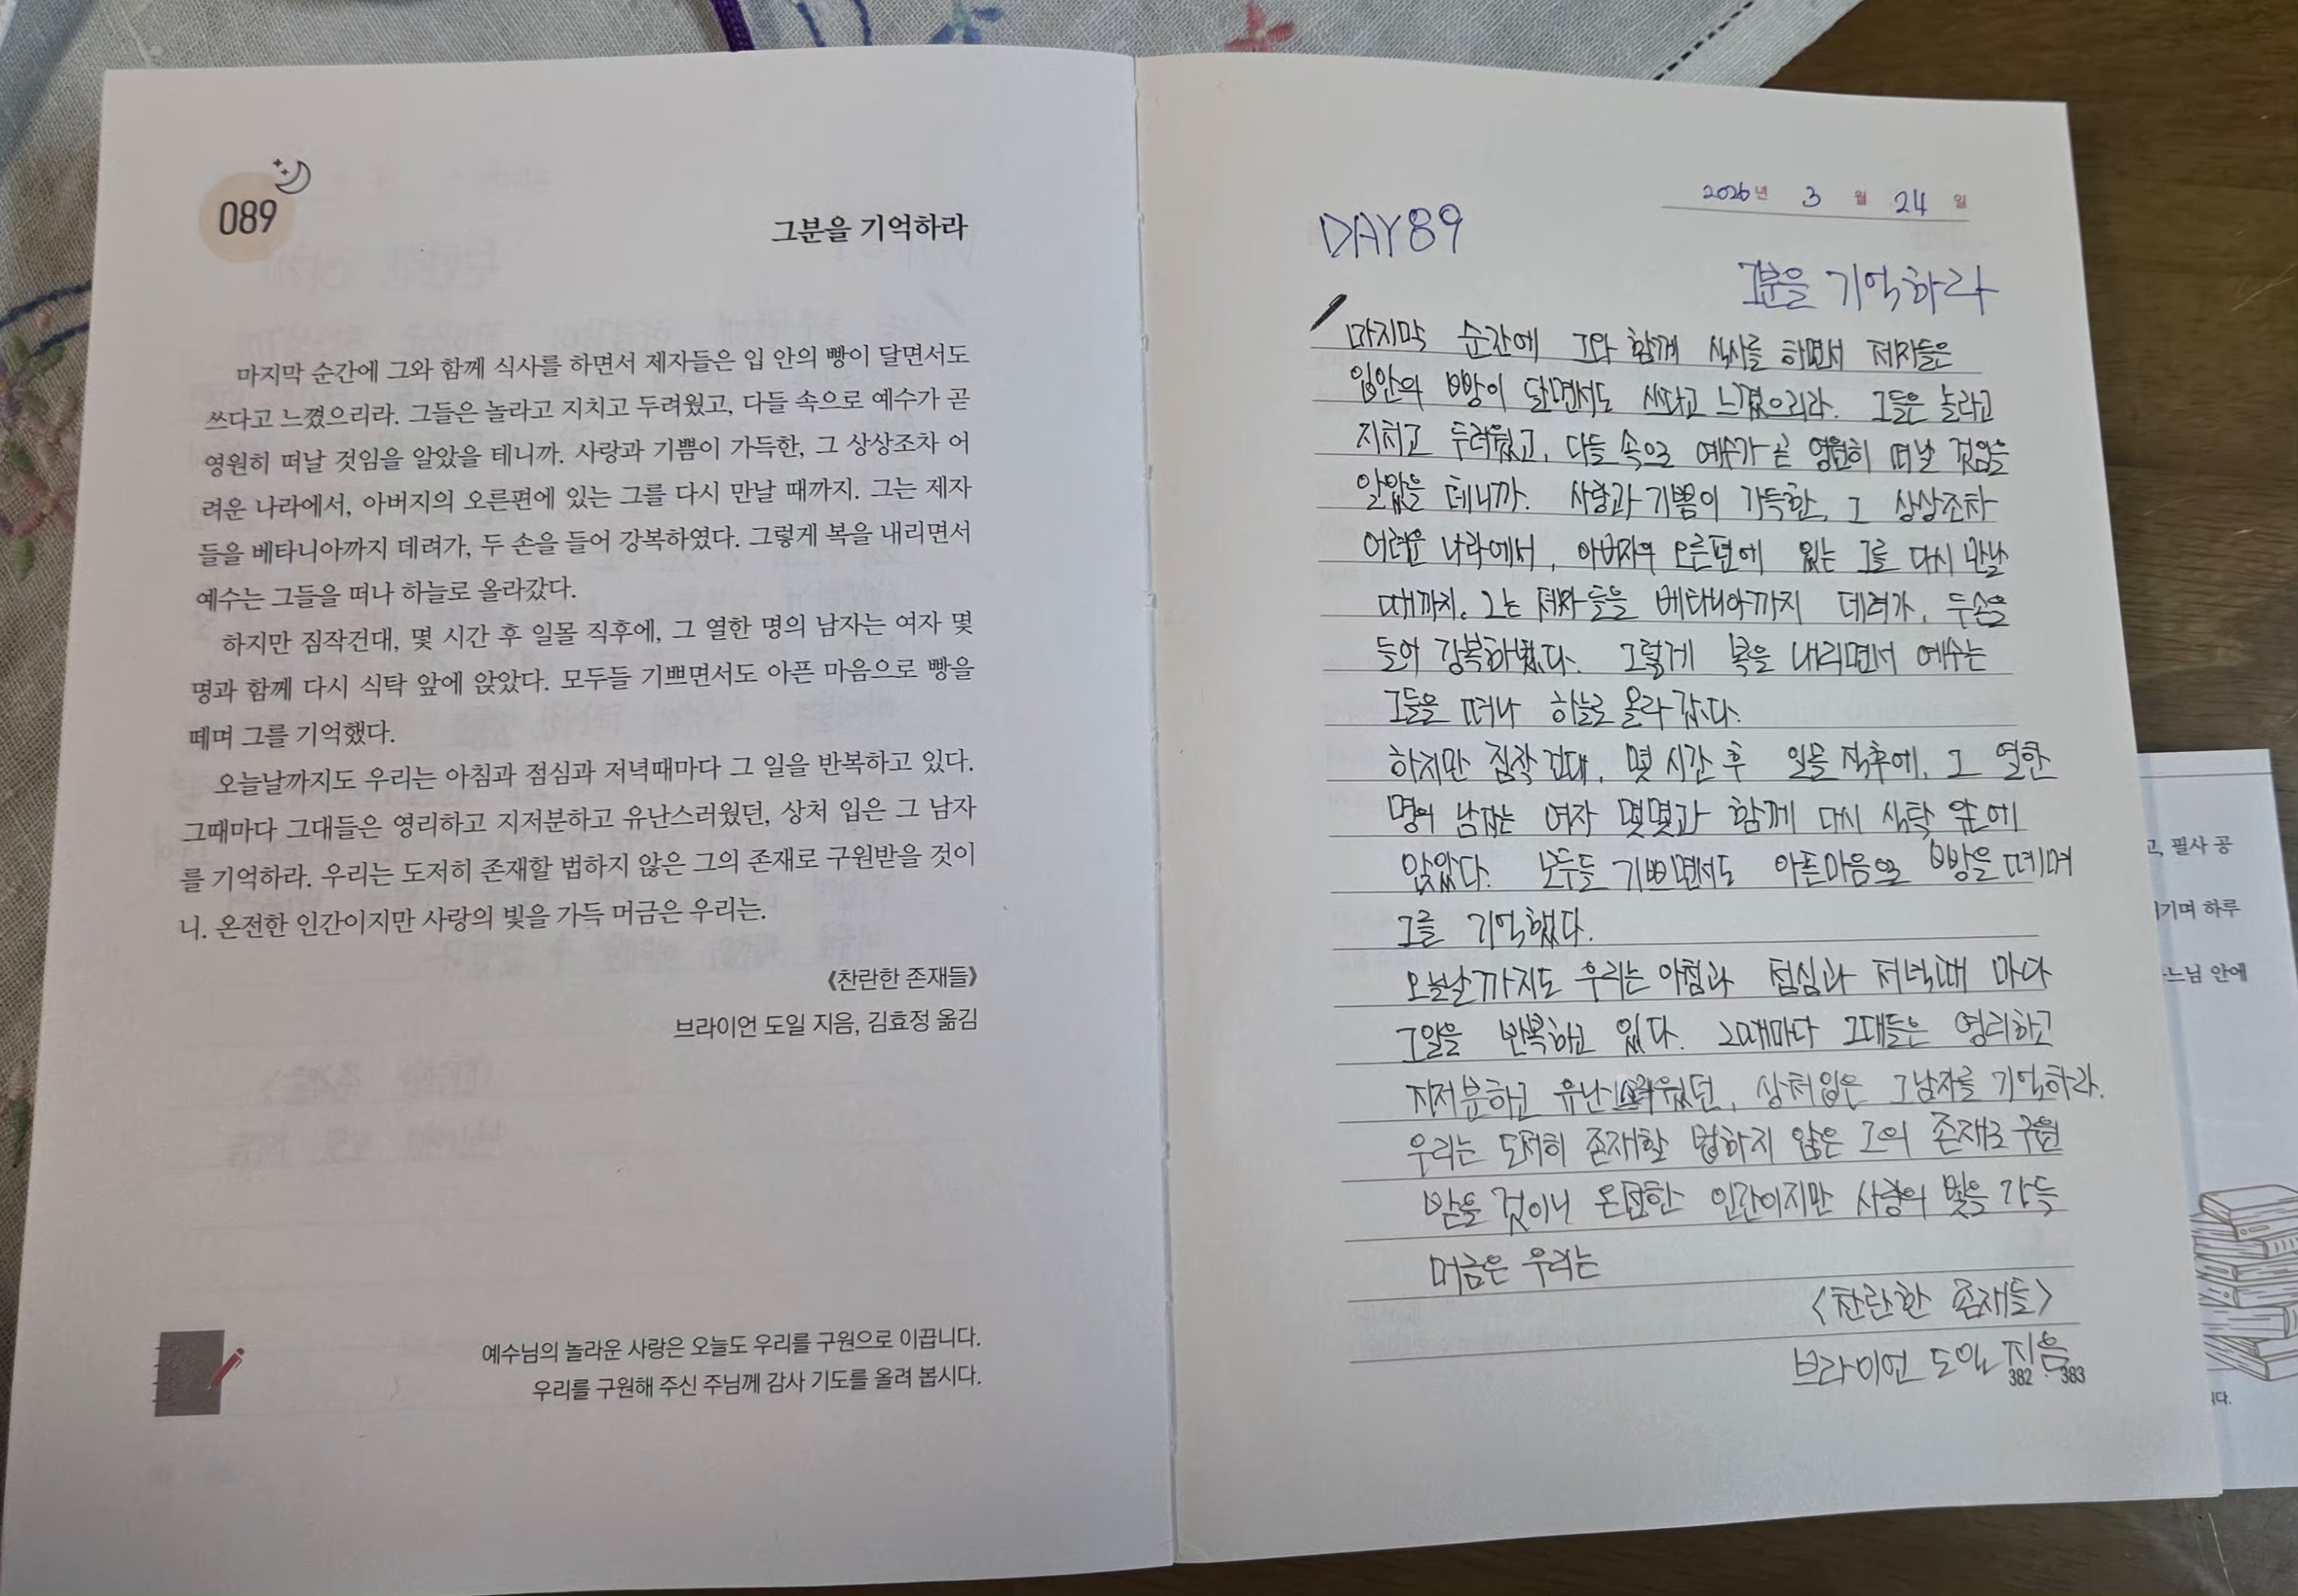 089
그분을 기억하라
마지막 순간에 그와 함께 식사를 하면서 제자들은 입 안의 빵이 달면서도
쓰다고 느꼈으리라. 그들은 놀라고 지치고 두려웠고, 다들 속으로 예수가 곧
영원히 떠날 것임을 알았을 테니까. 사랑과 기쁨이 가득한, 그 상상조차 어
려운 나라에서, 아버지의 오른편에 있는 그를 다시 만날 때까지. 그는 제자
들을 베타니아까지 데려가, 두 손을 들어 강복하였다. 그렇게 복을 내리면서
예수는 그들을 떠나 하늘로 올라갔다.
하지만 짐작건대, 몇 시간 후 일몰 직후에, 그 열한 명의 남자는 여자 몇
명과 함께 다시 식탁 앞에 앉았다. 모두들 기쁘면서도 아픈 마음으로 빵을
떼며 그를 기억했다.
오늘날까지도 우리는 아침과 점심과 저녁때마다 그 일을 반복하고 있다.
그때마다 그대들은 영리하고 지저분하고 유난스러웠던, 상처 입은 그 남자
를 기억하라. 우리는 도저히 존재할 법하지 않은 그의 존재로 구원받을 것이
니. 온전한 인간이지만 사랑의 빛을 가득 머금은 우리는.
《찬란한 존재들》
브라이언 도일 지음, 김효정 옮김
예수님의 놀라운 사랑은 오늘도 우리를 구원으로 이끕니다.
우리를 구원해 주신 주님께 감사 기도를 올려 봅시다.
2026년 3 월 24 일
DAY 89
그분을 기억하라
마지막 순간에 그와 함께 식사를 하면서 제자들은
입안의 빵이 달면서도 쓰다고 느꼈으리라. 그들은 놀라고
지치고 두려웠고, 다들 속으로 예수가 곧 영원히 떠날 것임을
알았을 테니까. 사랑과 기쁨이 가득한, 그 상상조차
어려운 나라에서, 아버지의 오른편에 있는 그를 다시 만날
때까지. 그는 제자들을 베타니아까지 데려가, 두손을
들어 강복하였다. 그렇게 복을 내리면서 예수는
그들을 떠나 하늘로 올라갔다.
하지만 짐작건대, 몇 시간 후 일몰 직후에, 그 열한
명의 남자는 여자 몇몇과 함께 다시 식탁 앞에
앉았다. 모두들 기쁘면서도 아픈마음으로 빵을 떼며
그를 기억했다.
오늘날까지도 우리는 아침과 점심과 저녁때 마다
그일을 반복하고 있다. 그때마다 그대들은 영리하고
지저분하고 유난스러웠던, 상처입은 그남자를 기억하라.
우리는 도저히 존재할 법하지 않은 그의 존재로 구원
받을 것이니 온전한 인간이지만 사랑의 빛을 가득
머금은 우리는
<찬란한 존재들>
브라이언 도일 지음
382 · 383
고, 필사 공
기며 하루
느님 안에
니다.